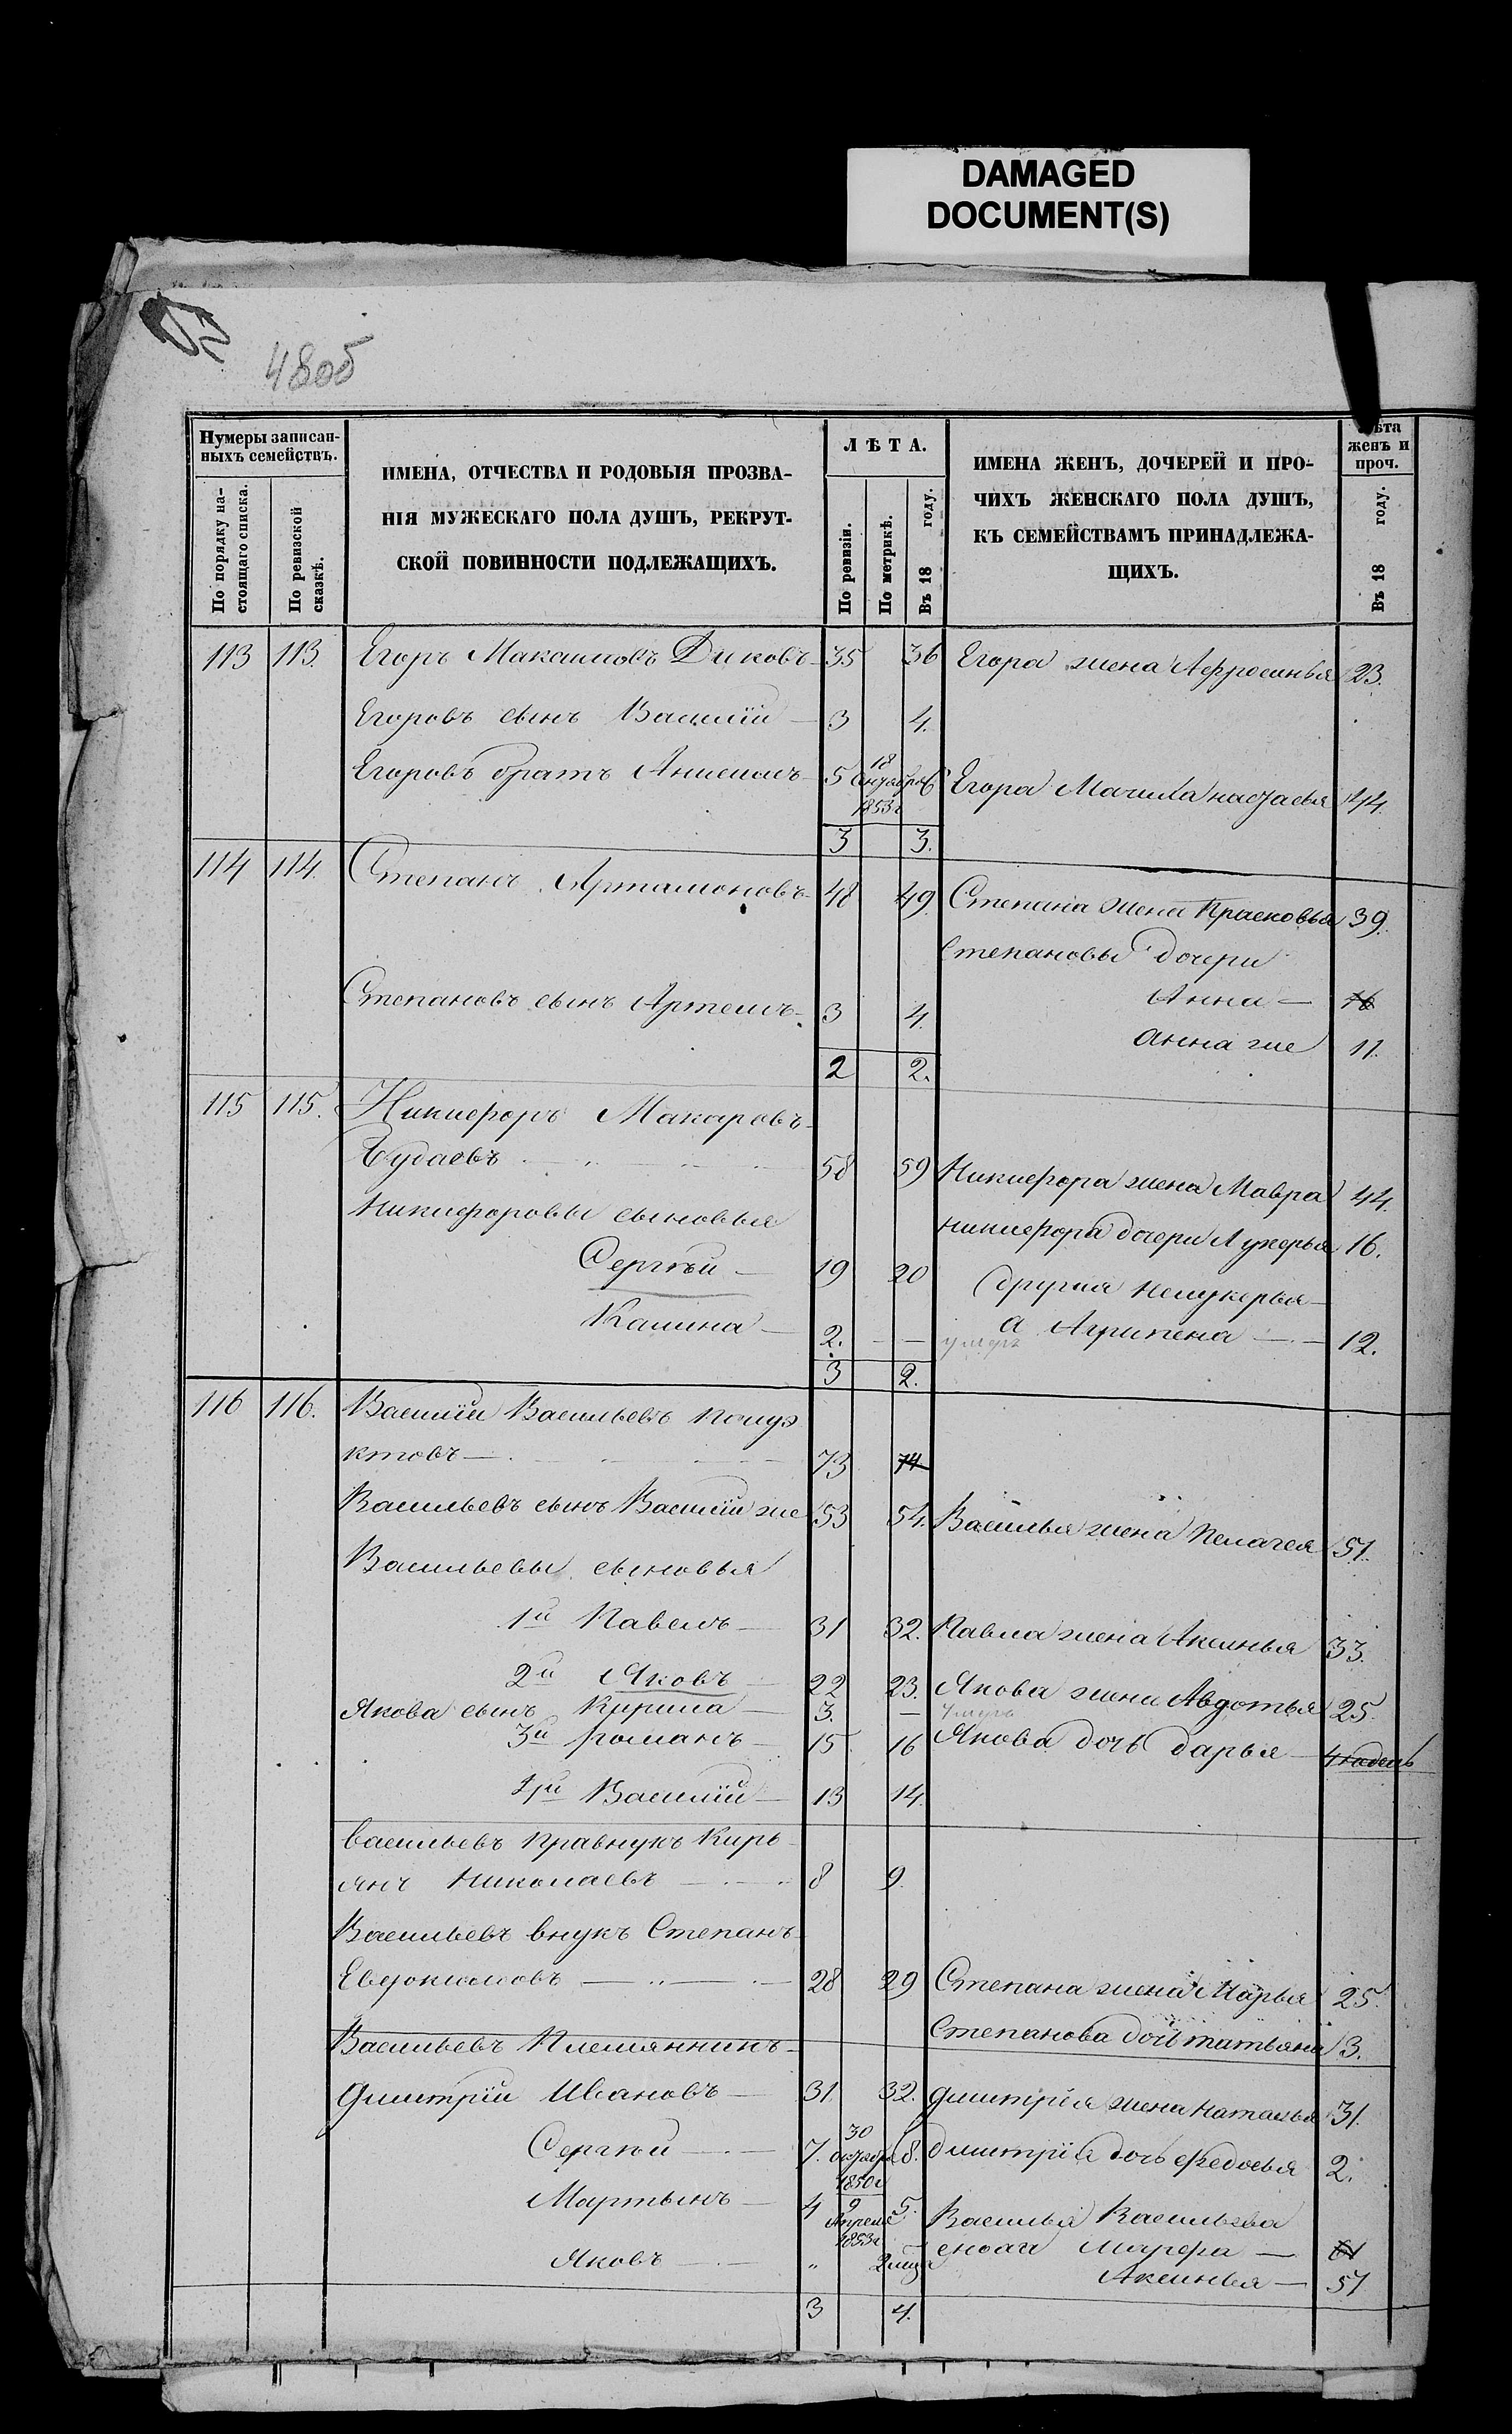 DAMAGED
DOCUMENT(S)
48об
Нумеры записан-
ныхъ семействъ.
По порядку на-
стоящаго списка.
По ревизской
сказкѣ.
ИМЕНА, ОТЧЕСТВА И РОДОВЫЯ ПРОЗВА-
НІЯ МУЖЕСКАГО ПОЛА ДУШЪ, РЕКРУТ-
СКОЙ ПОВИННОСТИ ПОДЛЕЖАЩИХЪ.
ЛѢТА.
По ревизіи.
По метрикѣ.
Въ 18 году.
ИМЕНА ЖЕНЪ, ДОЧЕРЕЙ И ПРО-
ЧИХЪ ЖЕНСКАГО ПОЛА ДУШЪ,
КЪ СЕМЕЙСТВАМЪ ПРИНАДЛЕЖА-
ЩИХЪ.
ѣта
женъ и
проч.
Въ 18 году.
113 113. Егоръ Максимовъ Диковъ 35 36 Егора жена Афросинья 23.
Егоровъ сынъ Василій — 3 4.
Егоровъ братъ 5 18 6 Егора 44.
1853г
3 3.
114 114. Степанъ Артамоновъ 48 49. Степана жена Прасковья 39.
Степановы дочери
Анна — 16
Степановъ сынъ Артемъ 3 4.
анна же 11.
2 2.
115 115. Никифоръ Макаровъ
58 59 Никифора жена Мавра 44.
Никифоровы сыновья
никифора дочери Лукерья 16.
Сергѣй — 19 20
другая нелукерья —
Калина — 2. — — умеръ а Агрипена — 12.
3 2.
116 116. Василій Васильевъ Полуэ
ктовъ — 73 74
Васильевъ сынъ Василій же 53 54. Василья жена Пелагея 51.
Васильевы сыновья
1й Павелъ — 31 32. Павла жена Аксинья 33.
2й Яковъ — 22 23. Якова жена Авдотья 25.
Якова сынъ Кирила — 3. — умеръ
3й романъ — 15 16 Якова дочь дарья —
4й Василій — 13 14.
васильевъ правнукъ Кирь
янъ Николаевъ — 8 9.
Васильевъ внукъ Степанъ
Евдокимовъ — 28 29 Степана жена Марья 25.
Степанова дочь татьяна 3.
Васильевъ Племянникъ
Дмитрій Ивановъ — 31. 32. дмитрія жена наталья 31.
Сергѣй — 7. 30 октября 1850г 8. дмитрія дочь федосья 2.
Мартынъ — 4 9 Апреля 1853г 5. Василья Васильева
сноха Марфа — 61
Яковъ — „
Аксинья — 51
3 4.